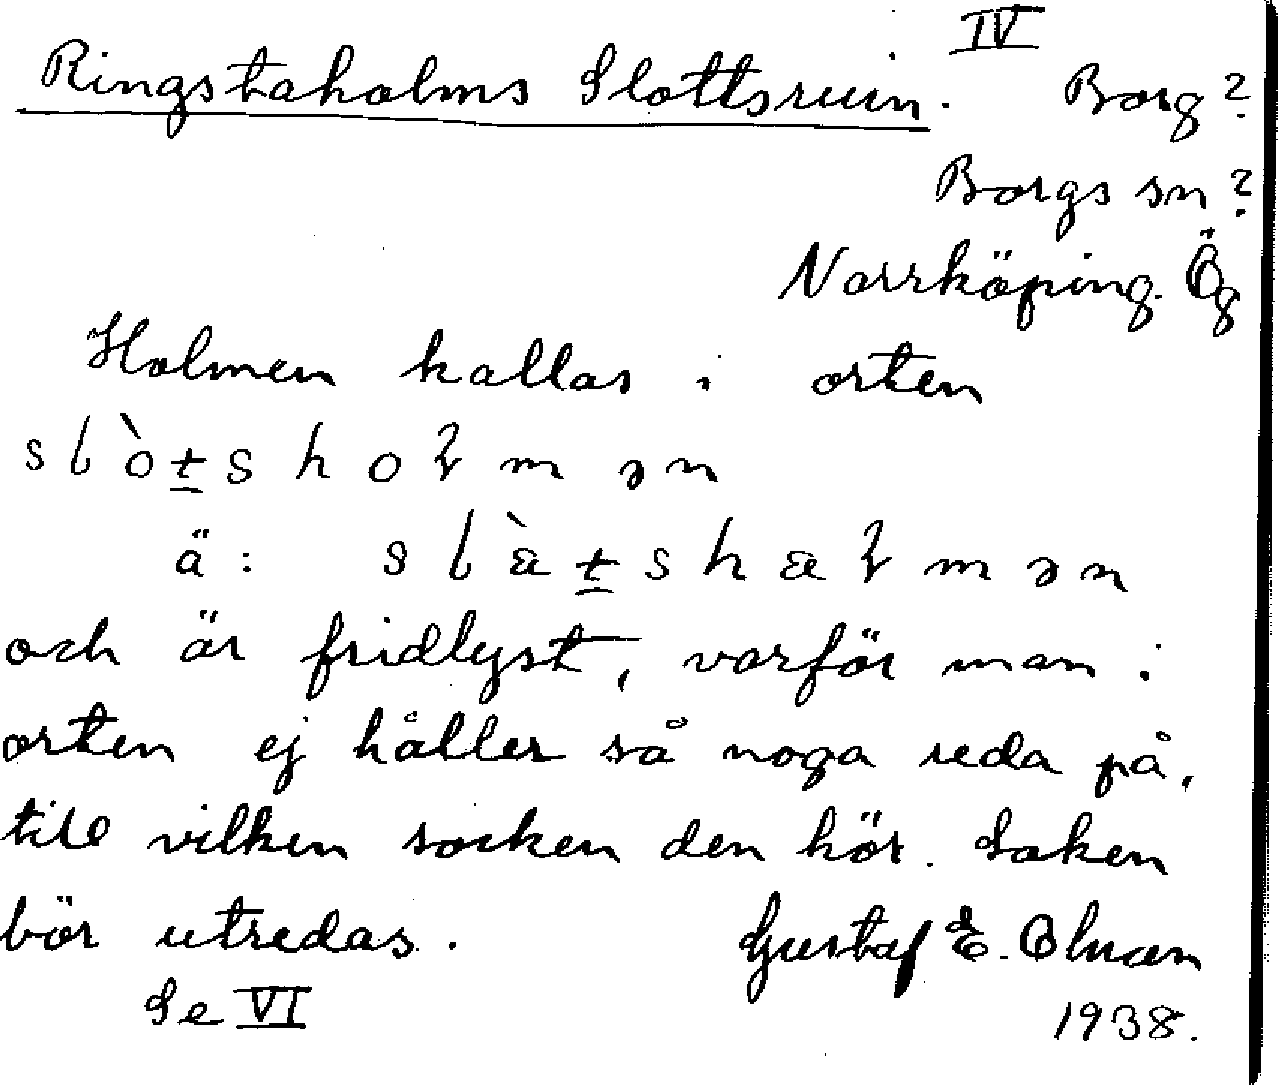 IV
Ringstaholms Slottsruin. Borg?
Borgs sn?
Norrköping. Ög
Holmen kallas i orten
slò̀tsholmən
ä: slàtshalmən
och är fridlyst, varför man i
orten ej håller så noga reda på,
till vilken socken den hör. Saken
bör utredas.
Gustaf E.
Se VI
1938.